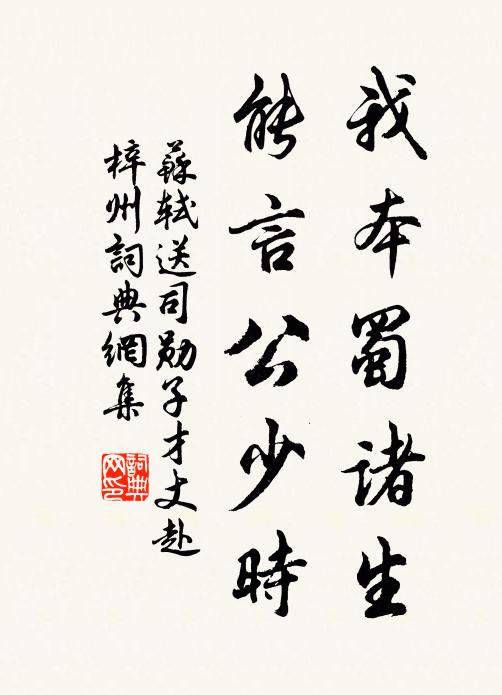 我本蜀諸生
能言公少時
蘇軾送司勛子才丈赴
梓州詞典網集
詞典网印